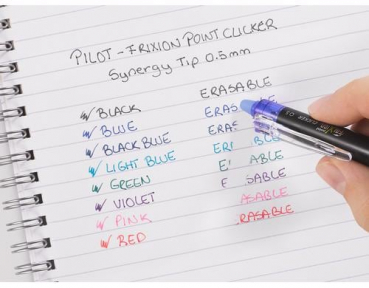 PILOT - FRIXION POINT CLICKER
Synergy Tip 0.5mm
BLACK ERASABLE
BLUE ERAS
BLACK BLUE ERAS
LIGHT BLUE ERA BLE
GREEN E ABLE
VIOLET E SABLE
PINK ASABLE
RED RASABLE